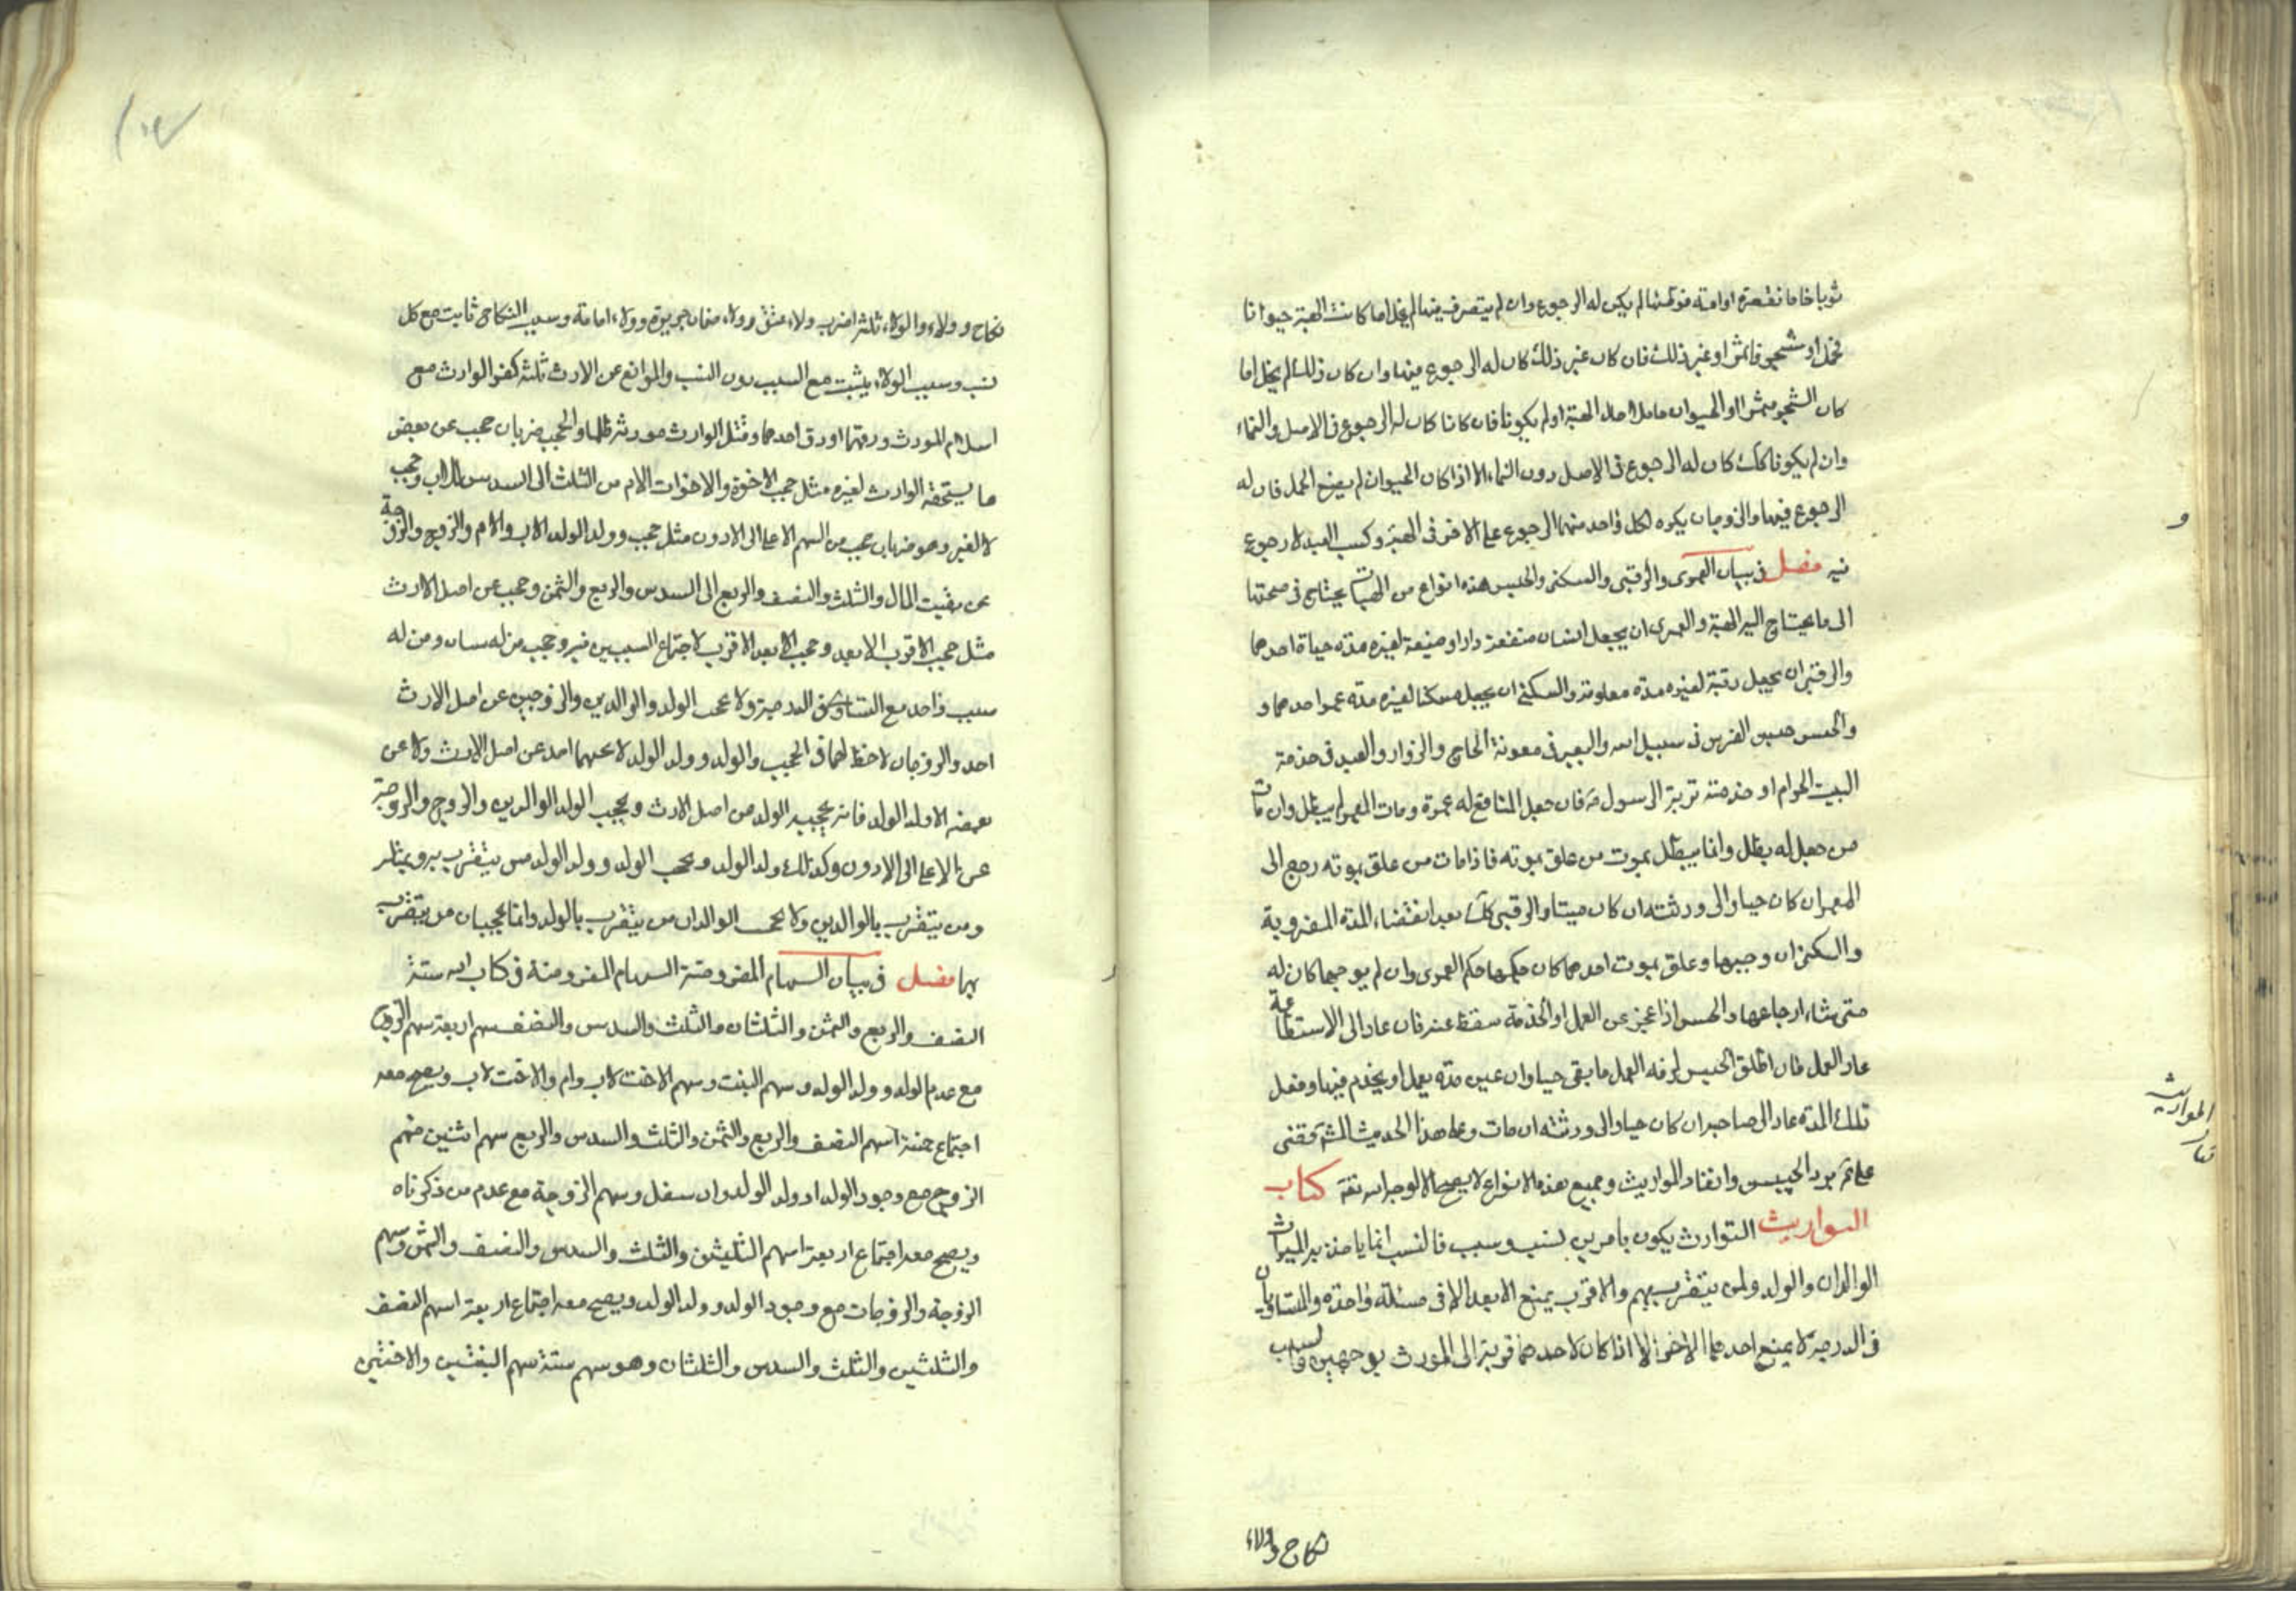 ثوبا خاما فقصره او امة فوطئها لم يكن له الرجوع وان لم يتصرف فيها لم يخل اما كانت الهبة حيوانا
فحمل او شجر فاثمر او غير ذلك فان كان غير ذلك كان له الرجوع فيها وان كان ذلك لم يخل اما
كان الشجر مثمرا او الحيوان حاملا حال الهبة او لم يكونا فان كانا كان له الرجوع في الاصل والنماء
وان لم يكونا كك كان له الرجوع في الاصل دون النماء الا اذا كان الحيوان لم يضع الحمل فان له
الرجوع فيها والزوجان يكره لكل واحد منهما الرجوع على الاخر في الهبة وكسب العبد لا رجوع
فيه فصل في بيان العمرى والرقبى والسكنى والحبس هذه انواع من الهبات يحتاج في صحتها
الى ما يحتاج اليه الهبة والعمرى ان يجعل انسان منفعة دار او ضيعة لغيره مدة حياة احدهما
والرقبى ان يجعل رقبة لغيره مدة معلومة والسكنى ان يجعل مسكنا لغيره مدة عمر احدهما و
والحبس حبس الفرس في سبيل الله والبعير في معونة الحاج والزوار والعبد في خدمة
البيت الحرام او خدمة تربة الرسول ص فان جعل المنافع له عمرة ومات المعمر لم يبطل وان مات
من جعل له بطل وانما يبطل بموت من علق بموته فاذا مات من علق بموته رجع الى
المعمر ان كان حيا والى ورثته ان كان ميتا والرقبى كك بعد انقضاء المدة المضروبة
والسكنى ان وجبها وعلق بموت احدهما كان حكمها حكم العمرى وان لم يوجبها كان له
متى شاء ارجاعها والحبس اذا عجز عن العمل او الخدمة سقط عنه فان عاد الى الاستطاعة
عاد العمل فان اطلق الحبس لزمه العمل ما بقى حيا وان عين مدة يعمل او يخدم فيها وفعل
تلك المدة عاد الى صاحبه ان كان حيا والى ورثته ان مات وعلى هذا الحديث الشه فقضى
على ع برد الحبيس وانفاذ المواريث وجميع هذه الانواع لا يصح الا لوجه الله تعه كتاب
المواريث التوارث يكون بامرين نسب وسبب فالنسب انما ياخذ به الميراث
الوالدان والولد ولمن يتقرب بهم والاقرب يمنع الابعد الا في مسئلة واحدة والمتساويان
في الدرجة لا يمنع احدهما الاخر الا اذا كان لاحدهما قربة الى المورث بوجهين والسبب
نكاح وولاء
و
كتاب المواريث
نكاح وولاء والولاء ثلثة اضرب ولاء عتق وولاء ضمان جريرة وولاء امامة وسبب النكاح ثابت مع كل
نسب وسبب الولاء يثبت مع السبب دون النسب والموانع عن الارث ثلثة كفر الوارث مع
اسلام المورث ورقهما او رق احدهما وقتل الوارث مورثه ظلما والحجب ضربان حجب عن بعض
ما يستحقه الوارث لغيره مثل حجب الاخوة والاخوات الام من الثلث الى السدس للاب وحجب
لا لغير وهو ضربان حجب من السهم الاعلى الى الادون مثل حجب وولد الولد الاب والام والزوج والزوجة
عن بقيت المال والثلث والنصف والربع الى السدس والربع والثمن وحجب عن اصل الارث
مثل حجب الاقرب الابعد وحجب الابعد الاقرب لاجتماع السببين فيه وحجب من له سببان ومن له
سبب واحد مع التساوى في الدرجة ولا يحجب الولد والوالدين والزوجين عن اصل الارث
احد والزوجان لا حظ لهما في الحجب والولد وولد الولد لا يحجبهما احد عن اصل الارث ولا عن
بعضه الا ولد الولد فانه يحجبه الولد من اصل الارث ويحجب الولد الوالدين والزوج والزوجة
عن الاعلى الى الادون وكذلك ولد الولد ويحجب الولد وولد الولد من يتقرب به وبمثله
ومن يتقرب بالوالدين ولا يحجب الوالدان من يتقرب بالولد وانما يحجبان من يتقرب
بهما فصل في بيان السهام المفروضة السهام المفروضة في كتاب الله ستة
النصف والربع والثمن والثلثان والثلث والسدس والنصف سهم اربعة سهم الزوج
مع عدم الولد وولد الولد وسهم البنت وسهم الاخت لاب وام والاخت لاب ويصح معه
اجتماع خمسة اسهم النصف والربع والثمن والثلث والسدس والربع سهم اثنين منهم
الزوج مع وجود الولد او ولد الولد وان سفل وسهم الزوجة مع عدم من ذكرناه
ويصح معه اجتماع اربعة اسهم الثلثين والثلث والسدس والنصف والثمن وسهم
الزوجة والزوجات مع وجود الولد وولد الولد ويصح معه اجتماع اربعة اسهم النصف
والثلثين والثلث والسدس والثلثان وهو سهم ستة سهم البنتين والاختين